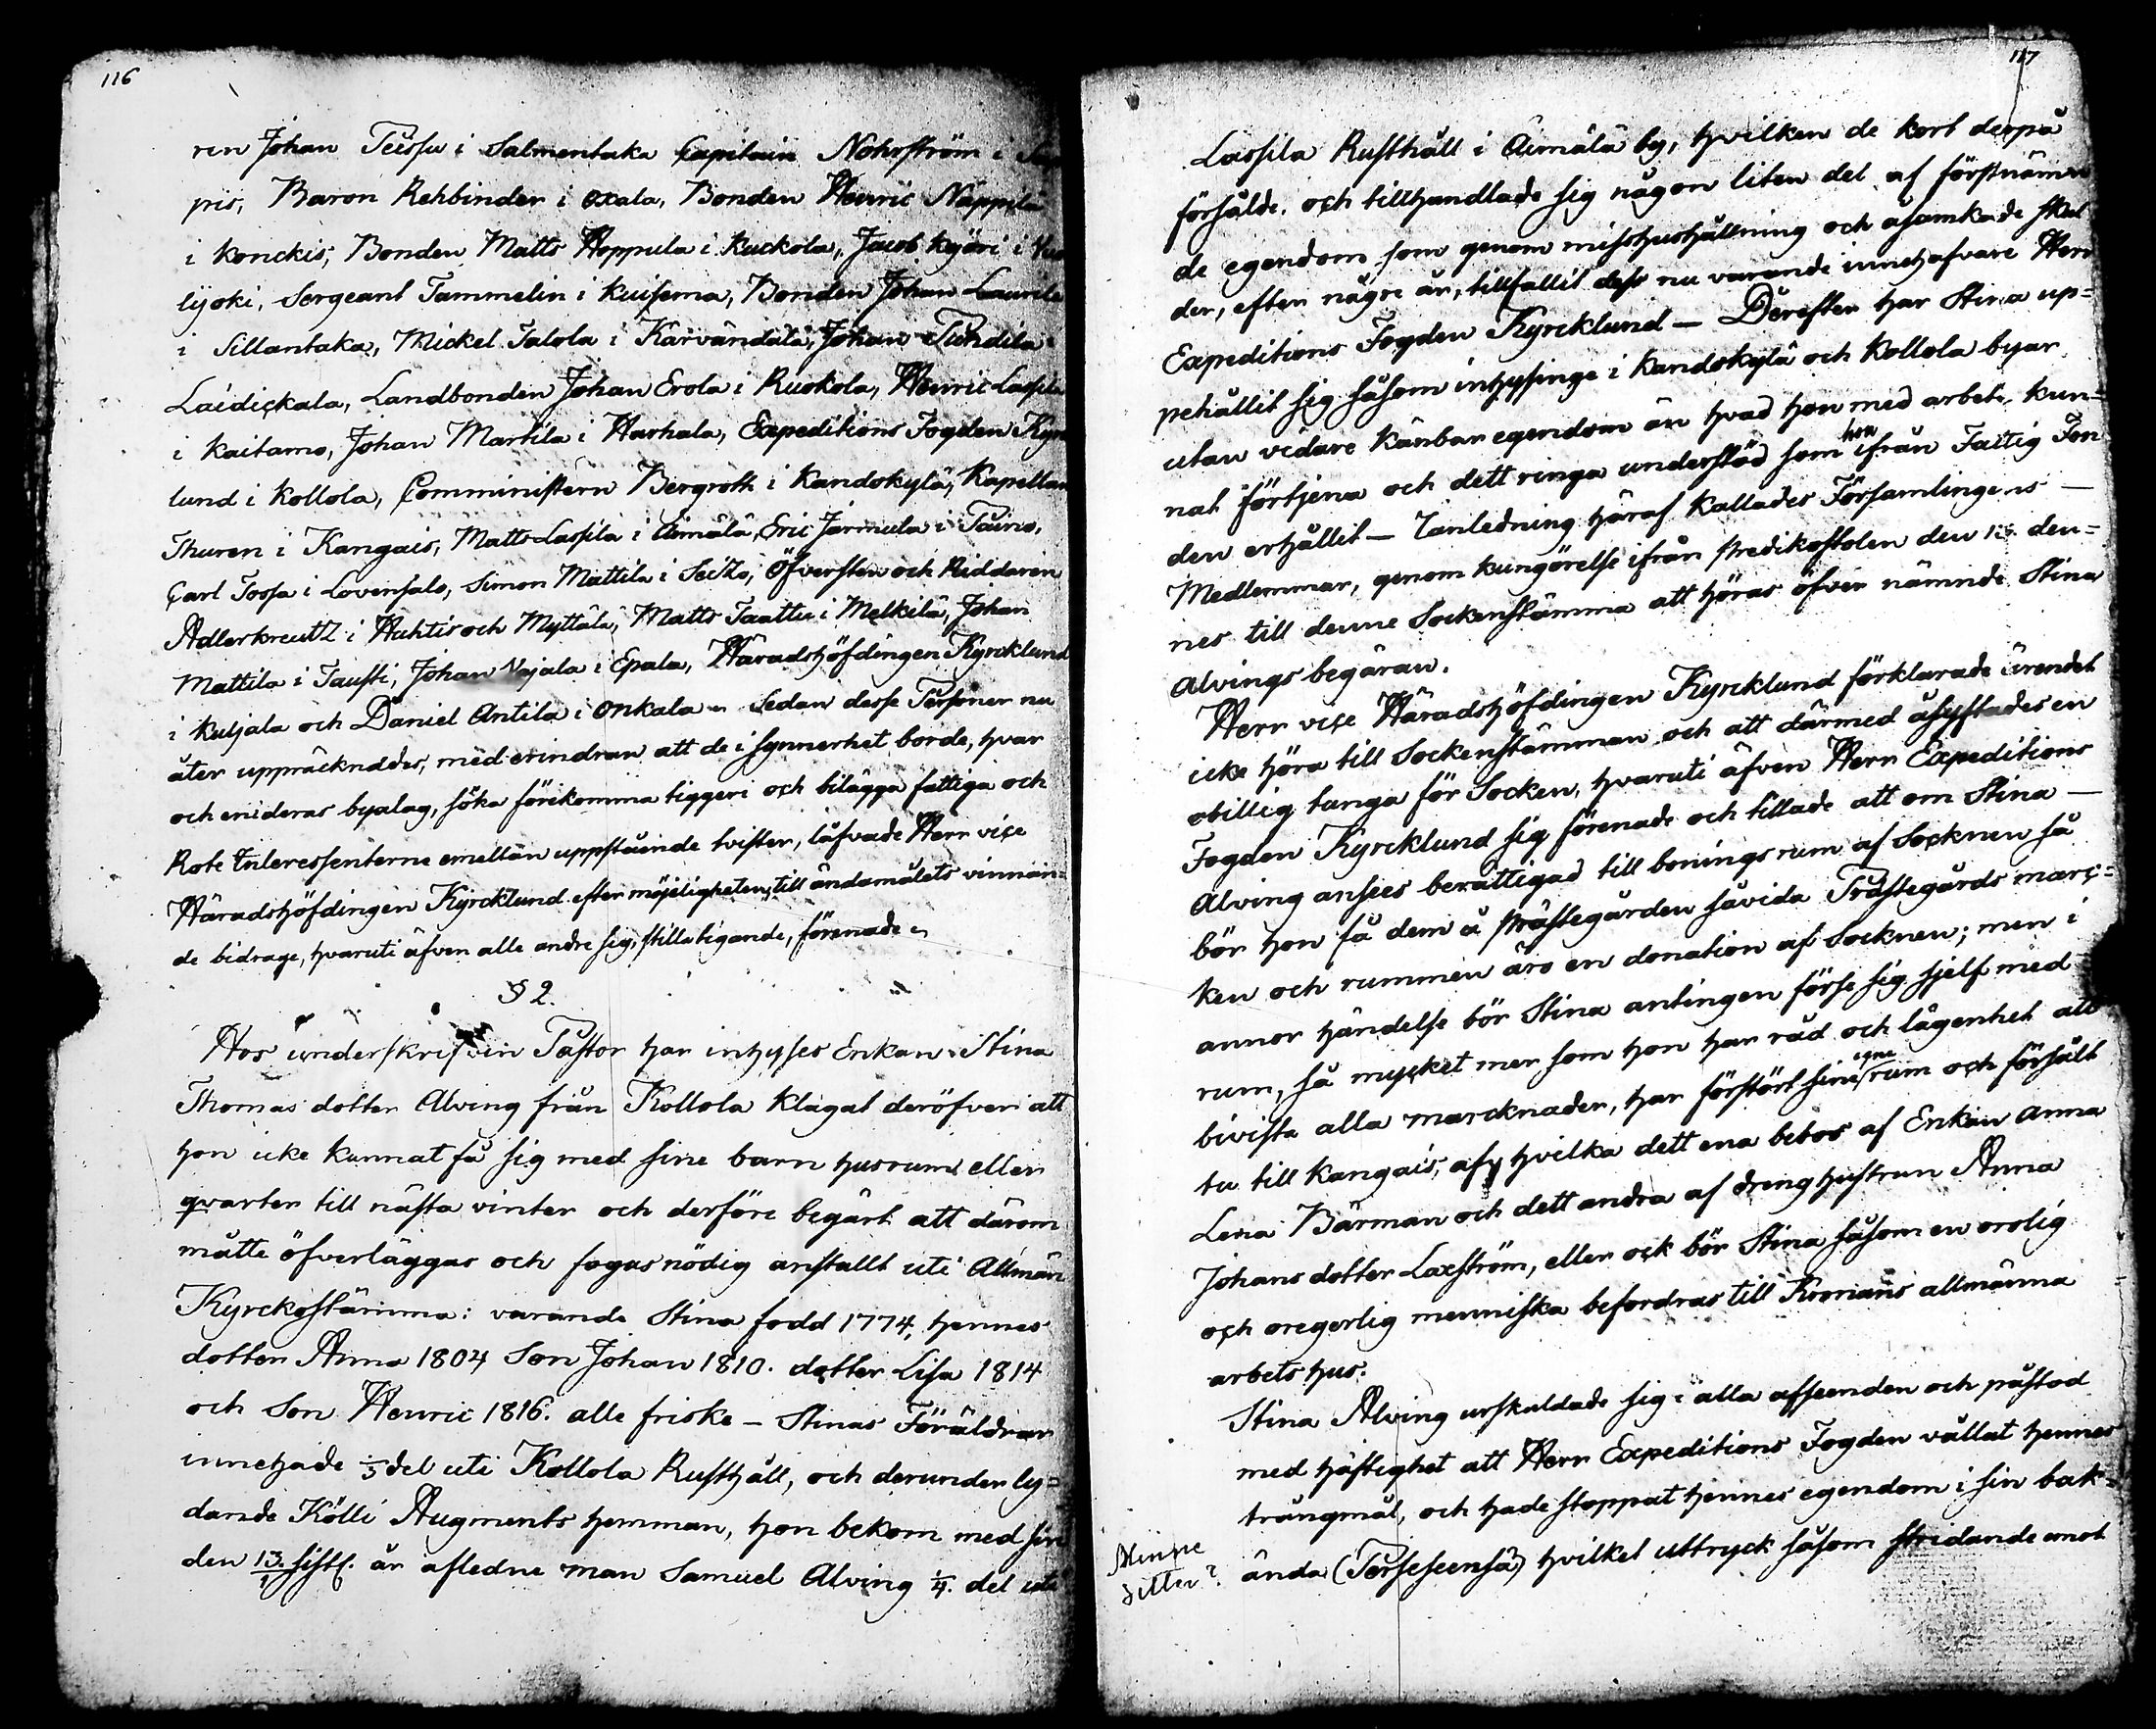 116
ren Johan Teissu i Salmentaka Capitain Nohrström i
pis, Baron Rehbinder i Oxala, Bonden Henric Näppilä
i Konckis, Bonden Matts Hoppula i Kuckola, Jacob Kyöri i
lijoki, Sergeant Tammelin i Kuisema, Bonden Johan Laurila
i Sillantaka, Mickel Talola i Karvändälä, Johan Tuhdila
Laidickala, Landbonden Johan Erola i Ruokola, Henric Lassila
i Kaitamo, Johan Martila i Harhala, Expeditions Fogden Kyrck
lund i Kollola, Comministern Bergroth i Kandokylä, Kapellan
Thuren i Kangais, Matts Lassila i Äimälä, Eric Järmula i Täino,
Carl Tossa i Lovensalo, Simon Mattila i Seitzo, Öfversten och Riddaren
Adlerkreutz i Huhtis och Myttälä, Matts Taattu i Melkilä, Johan
Mattila i Tausti, Johan Vajala i Epala, Häradshöfdingen Kyrcklund
i Kuljala och Daniel Antila i Onkala Sedan desse Personer nu
åter uppräcknades, med erindran att de i synnerhet borde, hvar
och en i deras byalag, söka förekomma tiggeri och bilägga fattiga och
Rote Interessenterne emellan uppstående tvister, låfvade Herr vice
Häradshöfdingen Kyrcklund efter möjeligheten, till ändamålets vinnan-
de bidrage, hvaruti äfven alle andre sig, stillatigande, förenade
§ 2.
Hos underskrifven Pastor har inhyses Enkan Stina
Thomas dotter Alving från Kollola klagat deröfver att
hon icke kunnat få sig med sine barn husrum eller
qvarter till nästa vinter och derföre begärt att därom
måtte öfverläggas och fogas nödig anstallt uti Allmän
Kyrckostämma: varande Stina fodd 1774, hennes
dotter Anna 1804 Son Johan 1810. dotter Lisa 1814
och Son Henric 1816. alle friske – Stinas Föräldrar
innehade 1/3 del uti Kollola Rusthåll, och derunder ly=
dande Kölli Augments hemman, hon bekom med sin
den 13/1 sistl. år afledne man Samuel Alving 1/4. del uti
117
Lassila Rusthåll i Äimälä by, hvilken de kort derpå
försålde, och tillhandlade sig någon liten del af förstnämn
de egendom som genom misshushållning och åsamkade skul
der, efter någre år, tillfallit dess nu varande innehafvare Herr
Expeditions Fogden Kyrcklund – Därefter har Stina up=
pehållit sig såsom inhysinge i Kandokylä och Kollola byar,
utan vidare känbar egendom än hvad hon med arbete kun=
nat förtjena och dett ringa understöd som hon ifrån Fattig Fon
den erhållit – I anledning häraf kallades Församlingens –
Medlemmar, genom kungörelse ifrån predikostolen den 13. den=
nes till denne Sockenstämma att höras öfver nämnde Stina
Alvings begäran.
Herr vice Häradshöfdingen Kyrcklund förklarade ärendet
icke höra till Sockenstämman och att därmed åsyftades en
obillig tunga för Socken, hvaruti äfven Herr Expeditions
Fogden Kyrcklund sig förenade och tillade att om Stina –
Alving anses berättigad till bonings rum af Socknen så
bör hon få dem å prästegården såvida Prästegårds marc=
ken och rummen äro en donation af Socknen; men i
annor händelse bör Stina antingen förse sig sjelf med
rum, så mycket mer som hon har råd och lägenhet att
bivista alla marcknader, har förstört sine egne rum och försålt
tu till Kangais, af hvilka dett ena bebos af Enkan Anna
Lena Bärman och dett andra af dreng hustrun Anna
Johans dotter Laxström, eller ock bör Stina såsom en orolig
och oregerlig menniska befordras till Kronans allmänna
arbets hus.
Stina Alving urskuldade sig i alla afseenden och påstod
med häftighet att Herr Expeditions Fogden vållat hennes
trångmål, och hade stoppat hennes egendom i sin bak=
ända (Perseseensä) hvilket uttryck såsom stridande emot